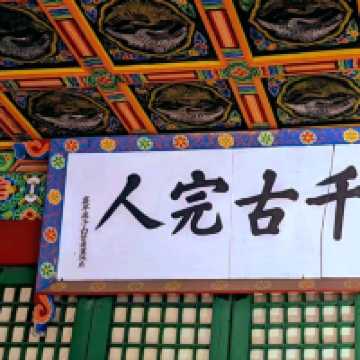 千古完人